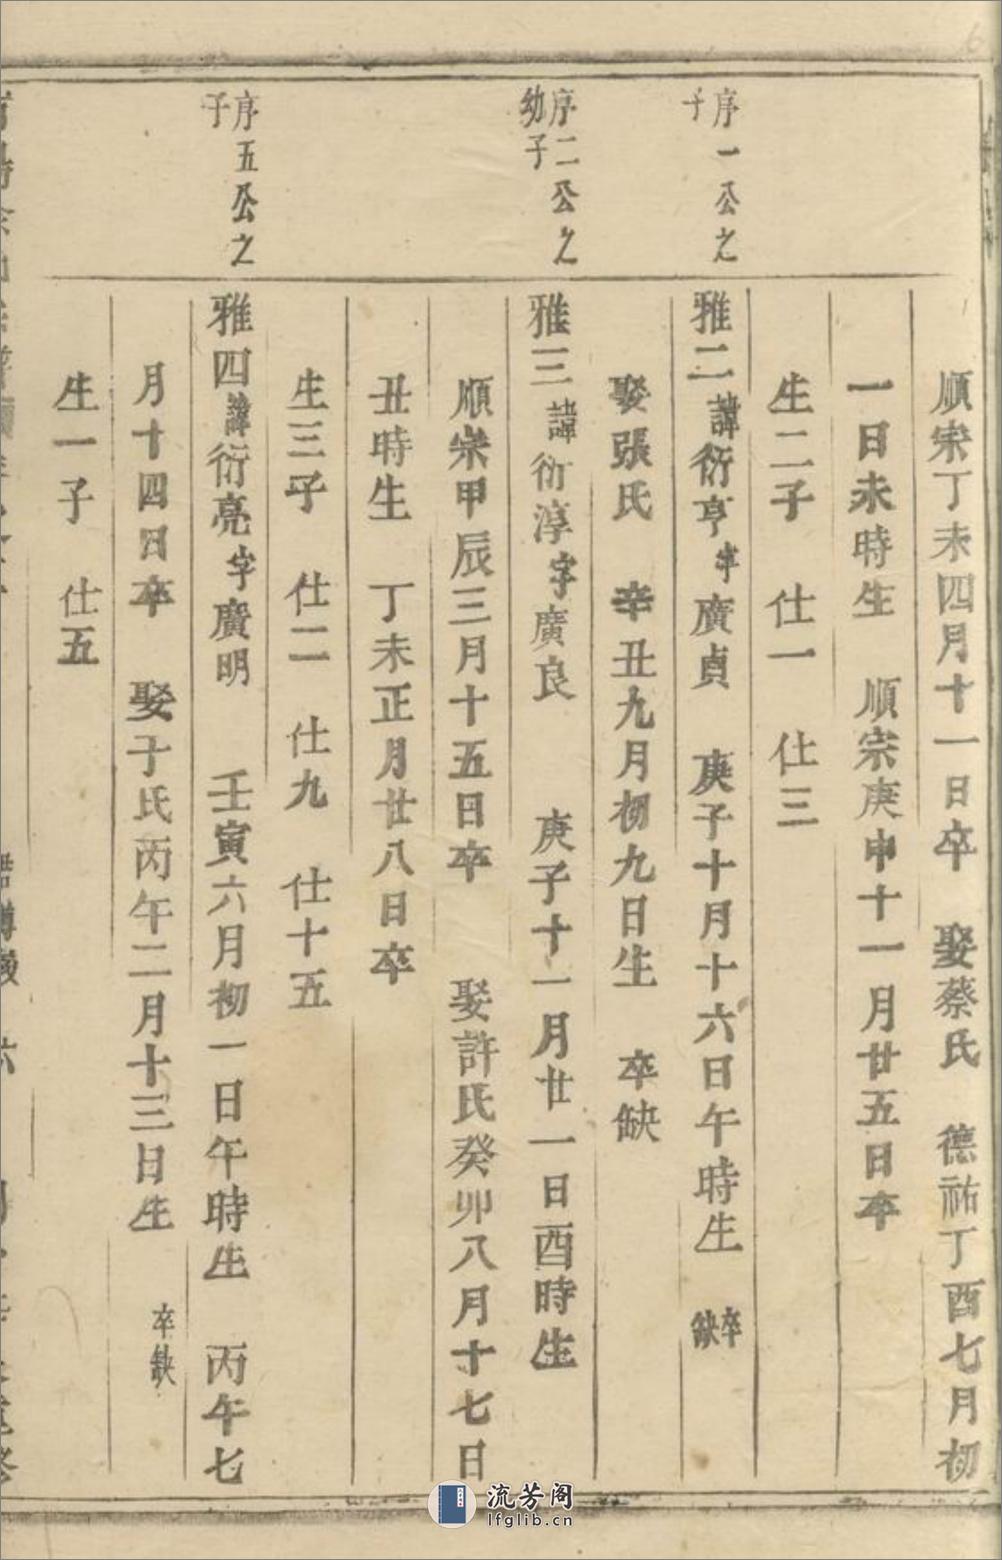 順宗丁未四月十一日卒 娶蔡氏 德祐丁酉七月初
一日未時生 順宗庚申十一月廿五日卒
生二子 仕一 仕三
序一公之子
雅二諱衍亨字廣貞 庚子十月十六日午時生 卒缺
娶張氏 辛丑九月初九日生 卒缺
序二公之幼子
雅三諱衍淳字廣良 庚子十一月廿一日酉時生
順宗甲辰三月十五日卒 娶許氏癸卯八月十七日
丑時生 丁未正月廿八日卒
生三子 仕二 仕九 仕十五
序五公之子
雅四諱衍亮字廣明 壬寅六月初一日午時生 丙午七
月十四日卒 娶于氏丙午二月十三日生 卒缺
生一子 仕五
流芳阁
lfglib.cn